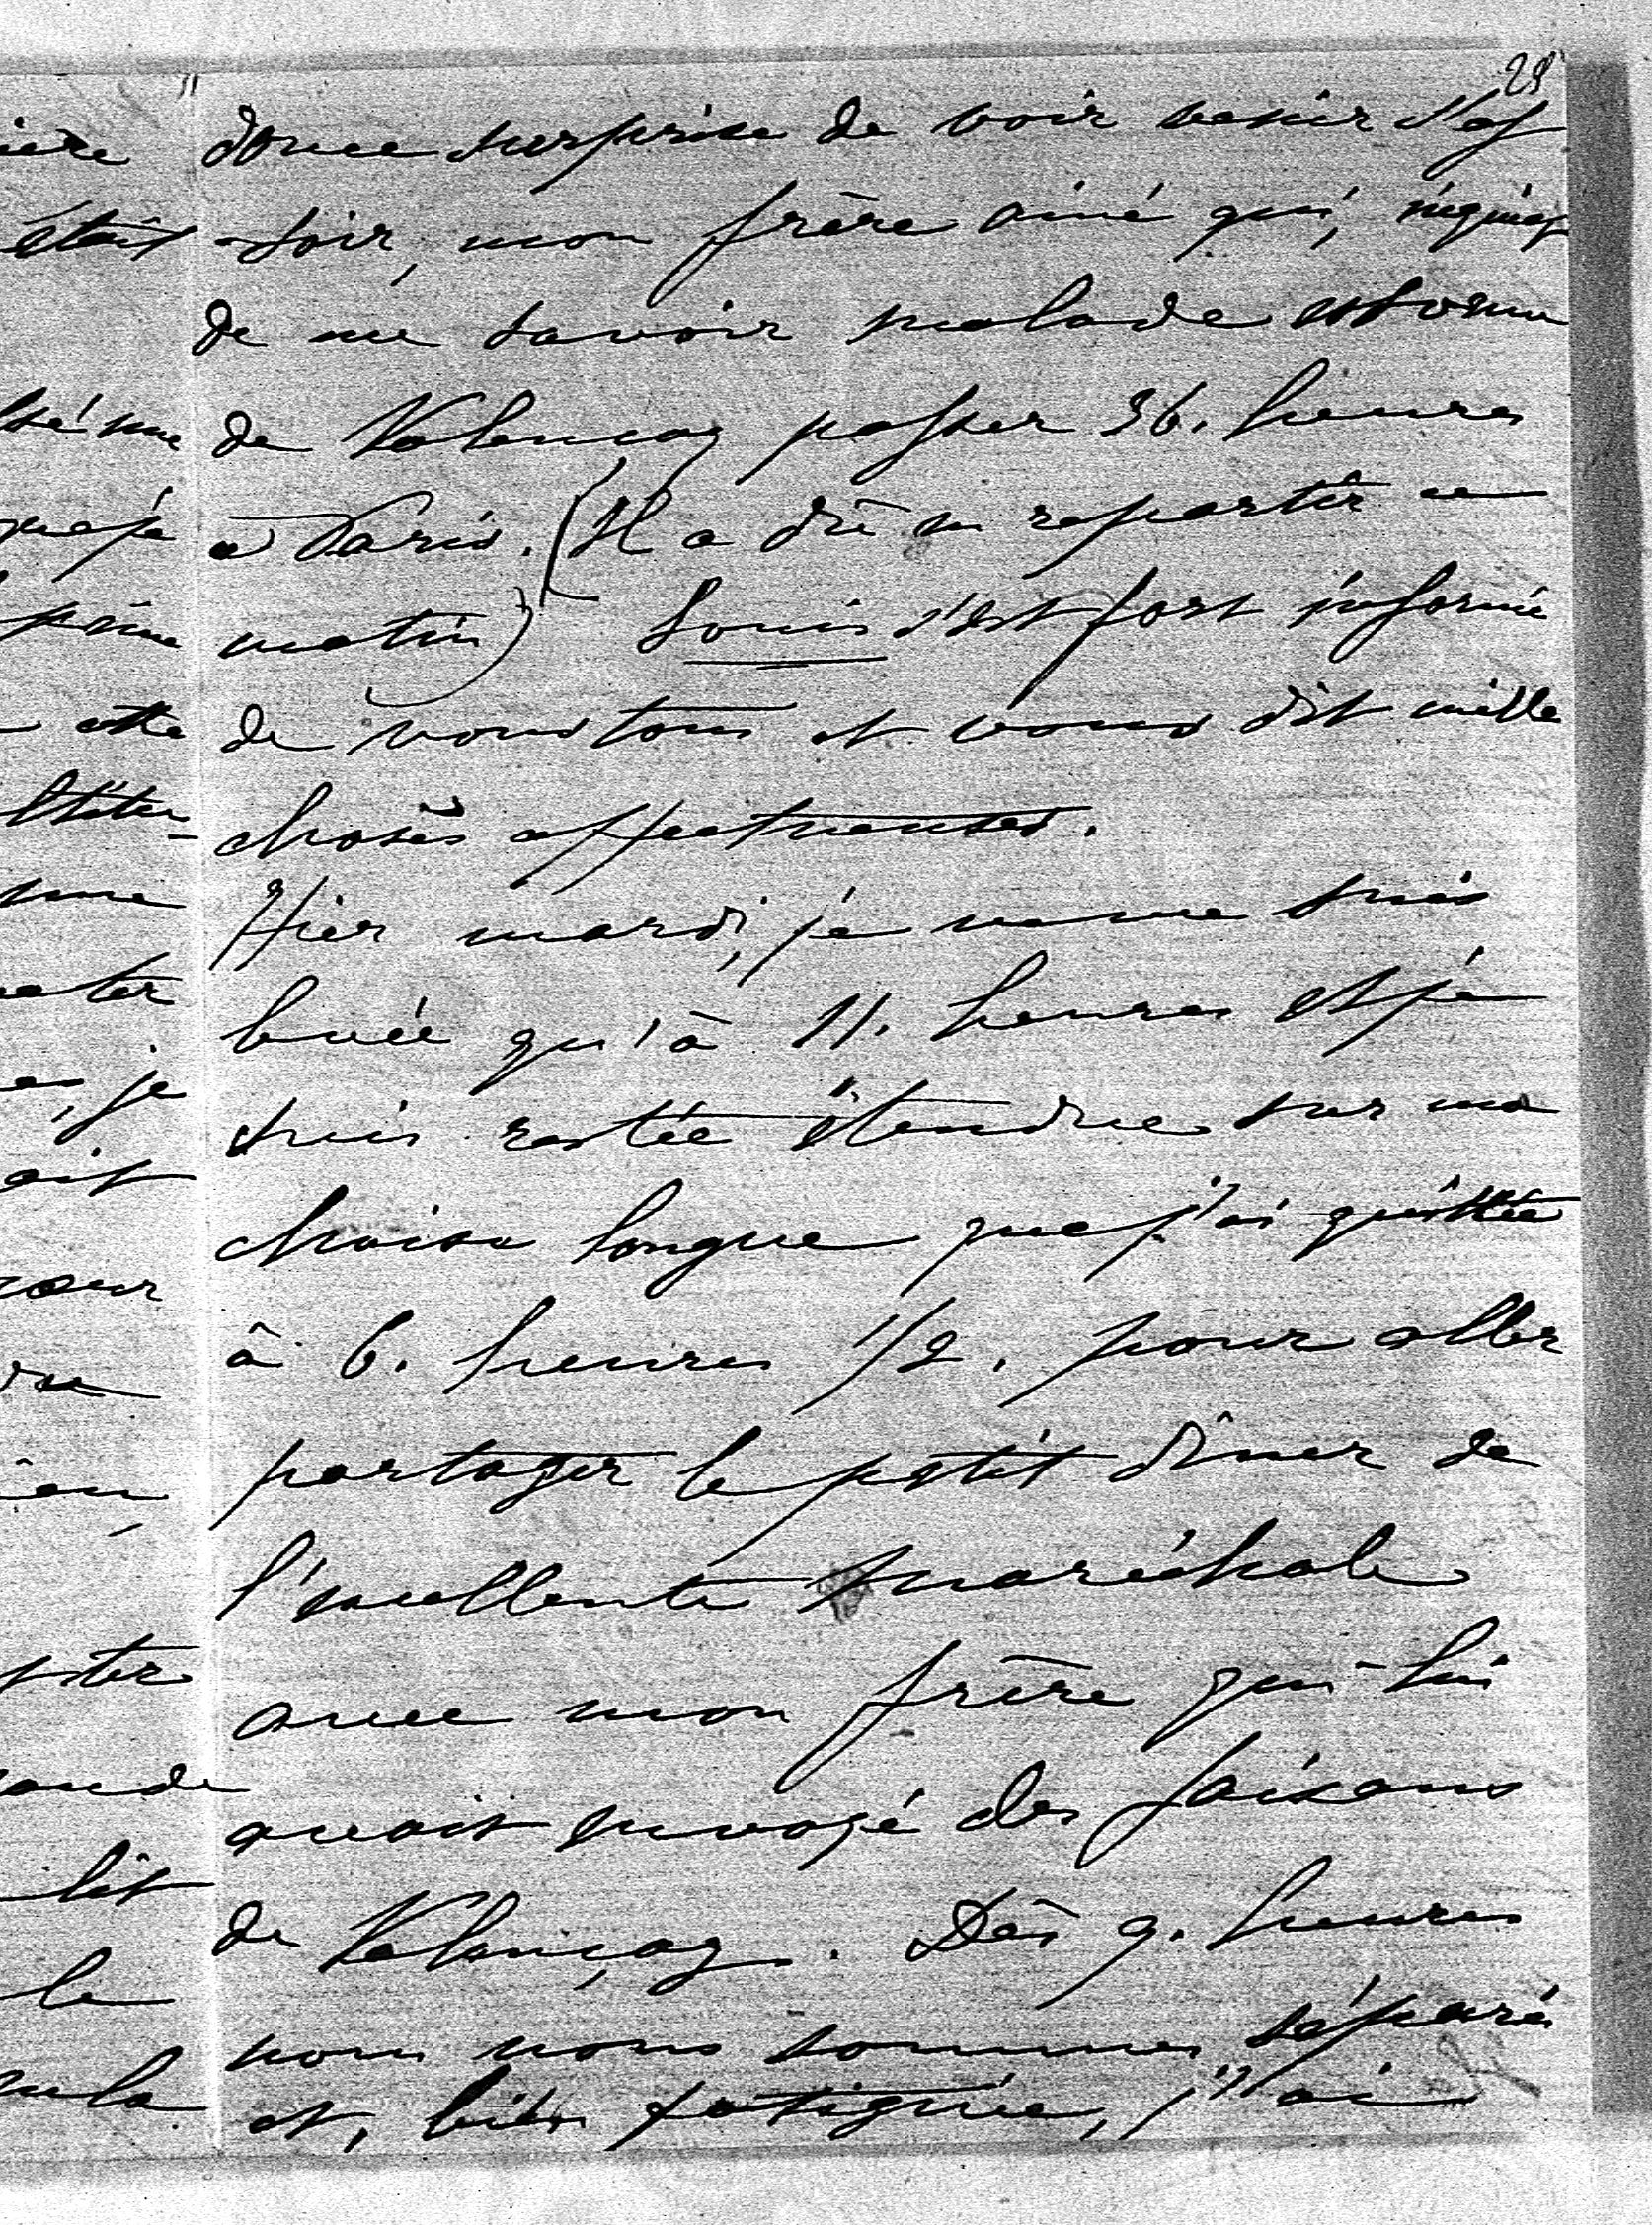 28
douce surprise de voir venir
soir, mon frère ainé qui, inquiet
de me savoir malade est venu
de Valençay passer 36. heures
à Paris. (Il a dû en repartir ce
matin) Louis s'est fort informé
de vous tous et vous dit mille
choses affectueuses.
Hier mardi, je ne me suis
levée qu'à 11. heures et je
suis restée étendue sur ma
chaise longue que j'ai quittée
à 6. heures 1/2. pour aller
partager le petit dîner de
l'excellente maréchale
avec mon frère qui lui
avait envoyé des faisans
de Valençay. Dès 9. heures
nous nous sommes séparés
et, bien fatiguée, j'ai